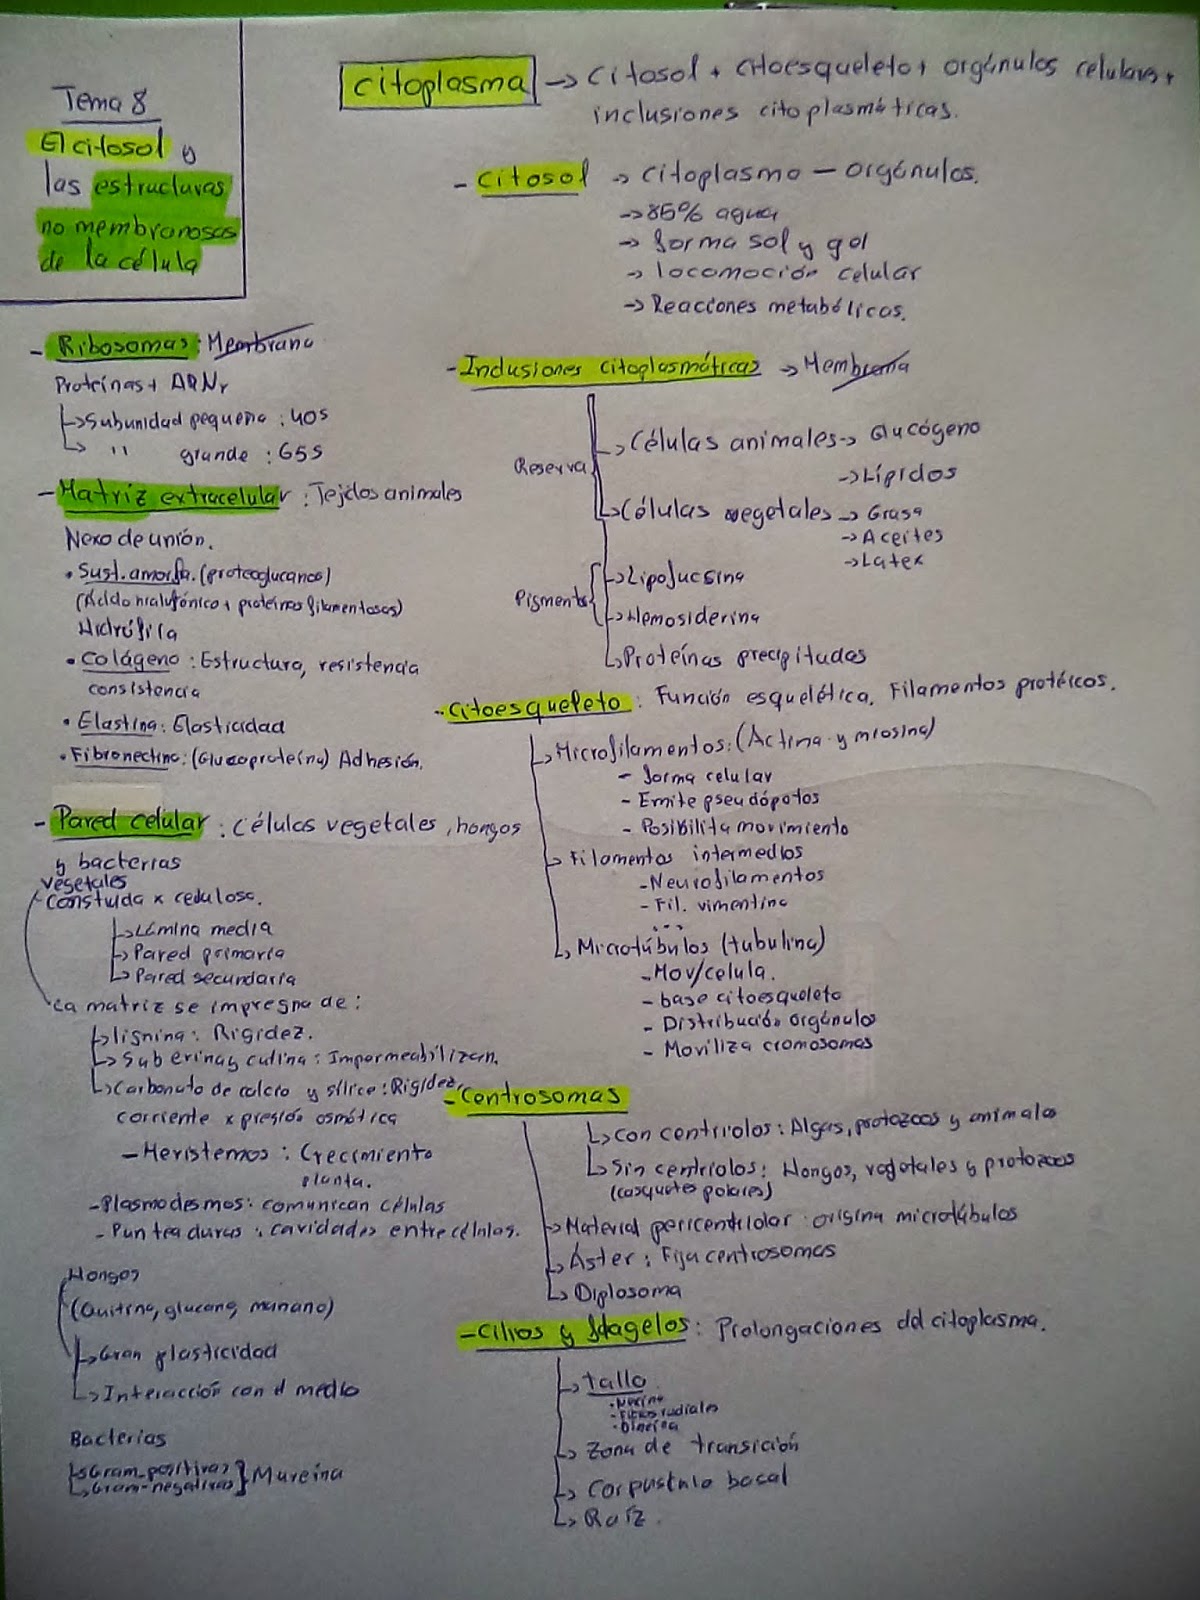 Tema 8
El citosol y
las estructuras
no membranosas
de la célula
citoplasma → citosol + citoesqueleto + orgánulos celulares +
inclusiones citoplasmáticas.
- Citosol → citoplasma - orgánulos.
→ 85% agua
→ forma sol y gel
→ locomoción celular
→ Reacciones metabólicas.
- Ribosomas: Membrana
Proteínas + ARNr
↳ Subunidad pequeña : 40s
↳ '' grande : 65s
- Matriz extracelular : Tejidos animales
Nexo de unión.
• Sust. amorfa. (proteoglucanos)
(Ácido hialurónico + proteínas filamentosas)
Hidrófila
• Colágeno : Estructura, resistencia
consistencia
• Elastina: Elasticidad
• Fibronectina: (Glucoproteína) Adhesión.
- Pared celular : Células vegetales, hongos
y bacterias
vegetales
Constuida x celulosa.
↳ Lámina media
↳ Pared primaria
↳ Pared secundaria
La matriz se impregna de :
↳ lignina: Rigidez.
↳ Suberina y cutina : Impermeabilizan.
↳ Carbonato de calcio y sílice : Rigidez
corriente x presión osmótica
- Meristemos : Crecimiento
planta.
- Plasmodesmos: comunican células
- Punteaduras : cavidades entre células.
Hongos
(Quitina, glucano, manano)
↳ Gran plasticidad
↳ Interacción con el medio
Bacterias
↳ Gram-positivas } Mureína
↳ Gram-negativas
- Inclusiones citoplasmáticas → Membrana
Reserva
↳ Células animales → Glucógeno
→ Lípidos
↳ Células vegetales → Grasa
→ Aceites
→ Latex
Pigmento {
↳ Lipofucsina
↳ Hemosiderina
↳ Proteínas precipitadas
- Citoesqueleto : Función esquelética. Filamentos protéicos.
↳ Microfilamentos: (Actina y miosina)
- forma celular
- Emite pseudópotos
- Posibilita movimiento
↳ Filamentos intermedios
- Neurofilamentos
- Fil. vimentina
...
↳ Microtúbulos (tubulina)
- Mov/celula.
- base citoesqueleto
- Distribución orgánulos
- Moviliza cromosomas
- Centrosomas
↳ Con centriolos : Algas, protozoos y animales
↳ Sin centriolos : Hongos, vegetales y protozoos
(casquetes polares)
↳ Material pericentriolar origina microtúbulos
↳ Áster : Fija centrosomas
↳ Diplosoma
- Cilios y flagelos : Prolongaciones del citoplasma.
↳ tallo
• Nexina
• Fibras radiales
• Dineina
↳ Zona de transición
↳ Corpúsculo basal
↳ Raíz.